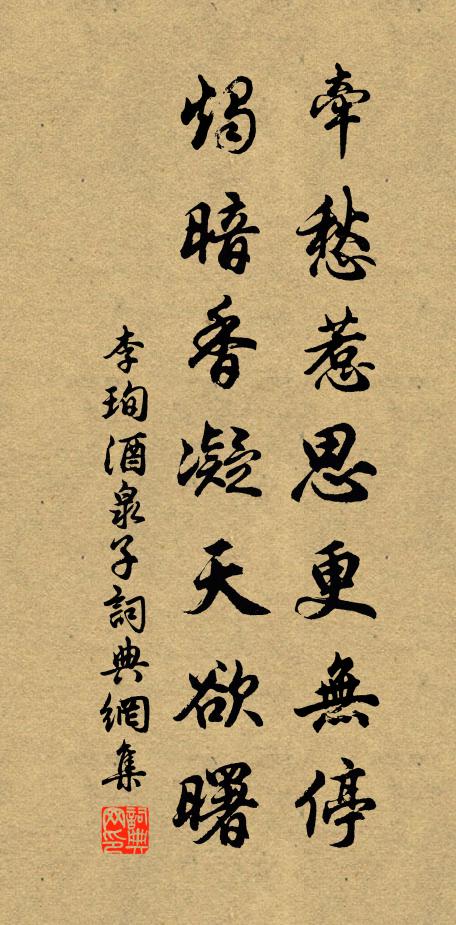 牽愁惹思更無停
燭暗香凝天欲曙
李珣酒泉子詞典網集
詞典網印